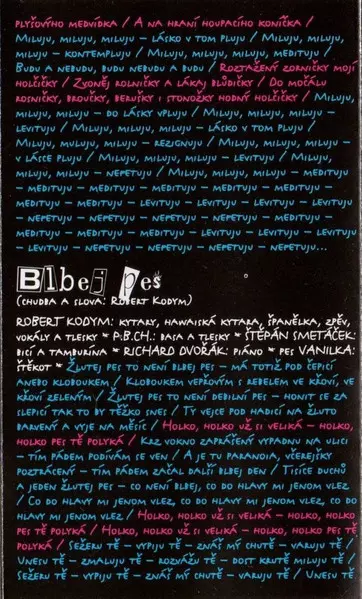 PLYŠOVÝHO MEDVÍDKA / A NA HRANÍ HOUPACÍHO KONÍČKA /
MILUJU, MILUJU, MILUJU – LÁSKO V TOM PLUJU / MILUJU, MILUJU,
MILUJU – KONTEMPLUJU / MILUJU, MILUJU, MILUJU, MEDITUJU /
BUDU A NEBUDU, BUDU NEBUDU A BUDU / ROZTAŽENÝ ZORNIČKY MOJÍ
HOLČIČKY / ZVONĚJ ROLNIČKY A LÁKAJ BLUDIČKY / DO MOČÁLU
ROSNIČKY, BROUČKY, BERUŠKY I STONOŽKY HODNÝ HOLČIČKY / MILUJU,
MILUJU, MILUJU – DO LÁSKY VPLUJU / MILUJU, MILUJU, MILUJU –
LEVITUJU / MILUJU, MILUJU, MILUJU – LÁSKO V TOM PLUJU /
MILUJU, MULUJU, MILUJU – REZIGNUJU / MILUJU, MILUJU, MILUJU –
V LÁSCE PLUJU / MILUJU, MILUJU, MILUJU – LEVITUJU / MILUJU,
MILUJU, MILUJU – NEPETUJU / MILUJU, MILUJU, MILUJU – MEDITUJU
– MEDITUJU – MEDITUJU – MEDITUJU – MEDITUJU – MEDITUJU –
MEDITUJU – MEDITUJU – MEDITUJU – LEVITUJU – LEVITUJU – LEVITUJU
– NEPETUJU – NEPETUJU – NEPETUJU – NEPETUJU – MEDITUJU –
MEDITUJU – MEDITUJU – MEDITUJU – LEVITUJU – LEVITUJU – LEVITUJU
– LEVITUJU – NEPETUJU – NEPETUJU – NEPETUJU – NEPETUJU...
Blbej pes
(CHUDBA A SLOVA: ROBERT KODYM)
ROBERT KODYM: KYTARY, HAWAISKÁ KYTARA, ŠPANĚLKA, ZPĚV,
VOKÁLY A TLESKY * P.B.CH.: BASA A TLESKY * ŠTĚPÁN SMETÁČEK:
BICÍ A TAMBURÍNA * RICHARD DVOŘÁK: PIÁNO * PES VANILKA:
ŠTĚKOT * ŽLUTEJ PES TO NENÍ BLBEJ PES – MÁ TOTIŽ POD ČEPICÍ
ANEBO KLOBOUKEM / KLOBOUKEM VEPŘOVÝM S REBELEM VE KŘOVÍ, VE
KŘOVÍ ZELENÝM / ŽLUTEJ PES TO NENÍ DEBILNÍ PES – HONIT SE ZA
SLEPICÍ TAK TO BY TĚŽKO DNES / TY VEJCE POD HADICÍ NA ŽLUTO
BARVENÝ A VYJE NA MĚSÍC / HOLKO, HOLKO UŽ SI VELIKÁ – HOLKO,
HOLKO PES TĚ POLYKÁ / KRZ VOKNO ZAPRÁŠENÝ VYPADNU NA ULICI
– TÍM PÁDEM PODÍVÁM SE VEN / A JE TU PARANOIA, VČEREJŠKY
POZTRÁCENÝ – TÍM PÁDEM ZAČAL DALŠÍ BLBEJ DEN / TISÍCE DUCHŮ
A JEDEN ŽLUTEJ PES – CO NENÍ BLBEJ, CO DO HLAVY MI JENOM VLEZ
/ CO DO HLAVY MI JENOM VLEZ, CO DO HLAVY MI JENOM VLEZ, CO DO
HLAVY MI JENOM VLEZ / HOLKO, HOLKO UŽ SI VELIKÁ – HOLKO, HOLKO
PES TĚ POLYKÁ / HOLKO, HOLKO UŽ SI VELIKÁ – HOLKO, HOLKO PES TĚ
POLYKÁ / SEŽERU TĚ – VYPIJU TĚ – ZNÁŠ MÝ CHUTĚ – VARUJU TĚ /
UNESU TĚ – ZMALUJU TĚ – ROZVÁŽU TĚ – DOST KRUTĚ MILUJU TĚ /
SEŽERU TĚ – VYPIJU TĚ – ZNÁŠ MÝ CHUTĚ – VARUJU TĚ / UNESU TĚ –